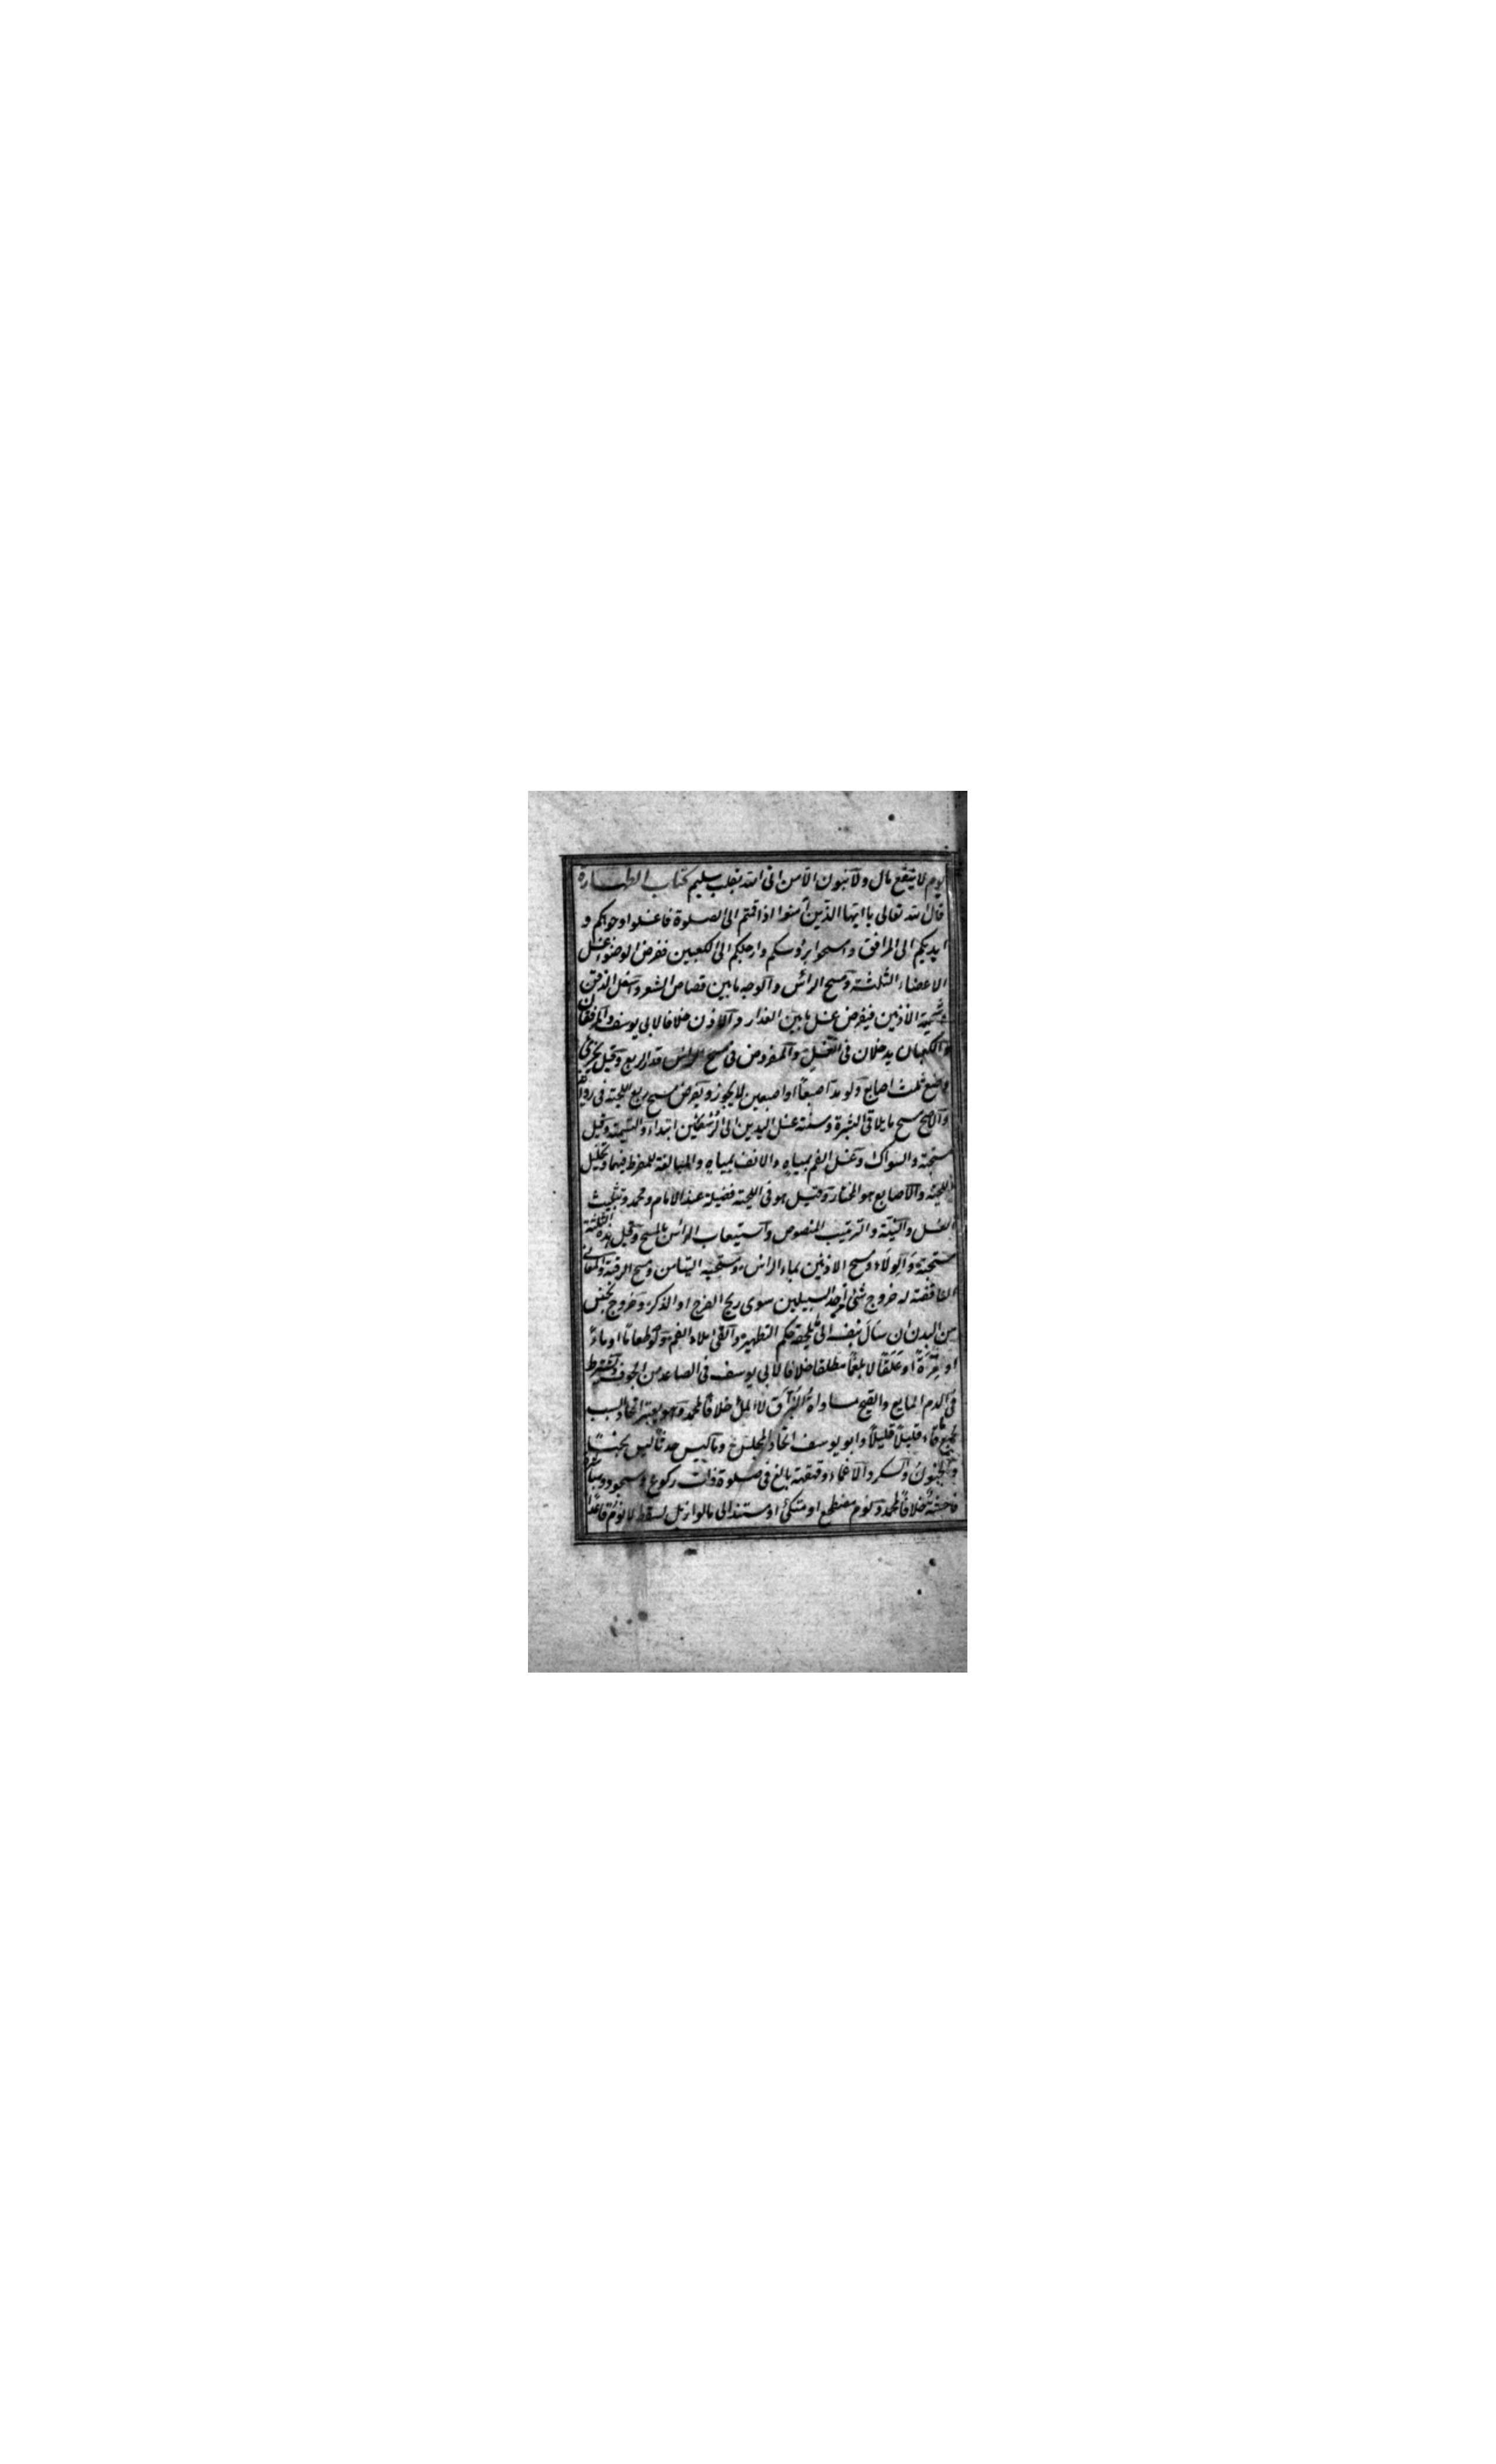 يوم لا ينفع مال ولا بنون الا من اتى الله بقلب سليم كتاب الطهارة
قال الله تعالى يا ايها الذين آمنوا اذا قمتم الى الصلوة فاغسلوا وجوهكم و
ايديكم الى المرافق وامسحوا برؤسكم وارجلكم الى الكعبين ففرض الوضوء غسل
الاعضاء الثلثة ومسح الرأس والوجه ما بين قصاص الشعر واسفل الذقن
وشحمة الاذنين فيفرض غسل ما بين العذار والاذن خلافا لابي يوسف والمرفقان
والكعبان يدخلان في الغسل والمفروض في مسح الرأس قدر الربع وقيل يجزئ
وضع ثلث اصابع ولو مد اصبعا او اصبعين لا يجوز ويفرض مسح ربع اللحية في رواية
والاصح مسح ما يلاقي البشرة وسنته غسل اليدين الى الرسغين ابتداء والتسمية وقيل
مستحبة والسواك وغسل الفم بمياه والانف بمياه والمبالغة للمفطر فيهما وتخليل
اللحية والاصابع هو المختار وقيل هو في اللحية فضيلة عند الامام ومحمد وتثليث
الغسل والنية والترتيب المنصوص واستيعاب الرأس بالمسح وقيل هذه الثلثة
مستحبة والولاء ومسح الاذنين بماء الرأس ومستحبه التيامن ومسح الرقبة والمعاني
الناقضة له خروج شئ من احد السبيلين سوى ريح الفرج او الذكر وخروج نجس
من البدن ان سال بنفسه الى ما يلحقه حكم التطهير والقئ ملاء الفم ولو طعاما او ماء
او مرة او علقا لا بلغما مطلقا خلافا لابي يوسف في الصاعد من الجوف ويشترط
في الدم المايع والقيح مساواة البزاق لا الملء خلافا لمحمد وهو يعتبر اتحاد السبب
لجمع ما قاء قليلا قليلا وابو يوسف اتحاد المجلس وما ليس حدثا ليس نجسا
والجنون والسكر والاغماء وقهقهة بالغ في صلوة ذات ركوع وسجود ومباشرة
فاحشة خلافا لمحمد ونوم مضطجع او متكئ او مستند الى ما لو ازيل لسقط لا نوم قاعد